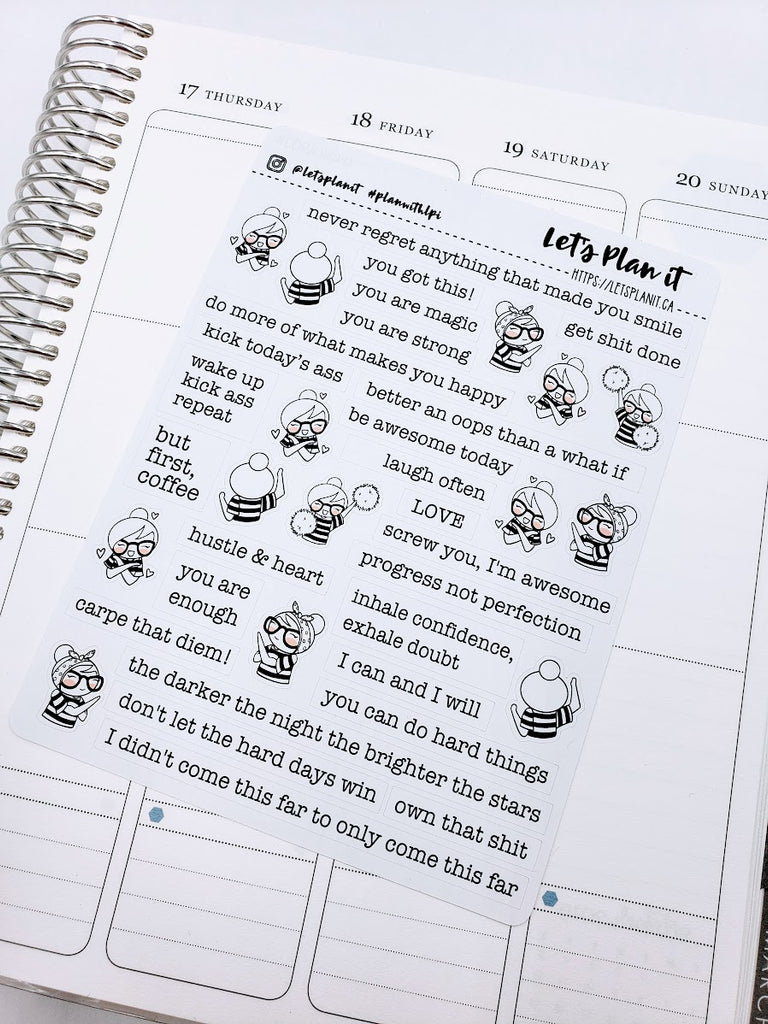 17 THURSDAY
18 FRIDAY
19 SATURDAY
20 SUNDAY
@letsplanit #planwithlpi
Let's Plan it
HTTPS://LETSPLANIT.CA
never regret anything that made you smile
you got this!
you are magic
you are strong
get shit done
do more of what makes you happy
kick today's ass
better an oops than a what if
wake up
kick ass
repeat
be awesome today
laugh often
but
first,
coffee
LOVE
screw you, I'm awesome
hustle & heart
progress not perfection
you are
enough
inhale confidence,
exhale doubt
carpe that diem!
I can and I will
you can do hard things
the darker the night the brighter the stars
don't let the hard days win
own that shit
I didn't come this far to only come this far